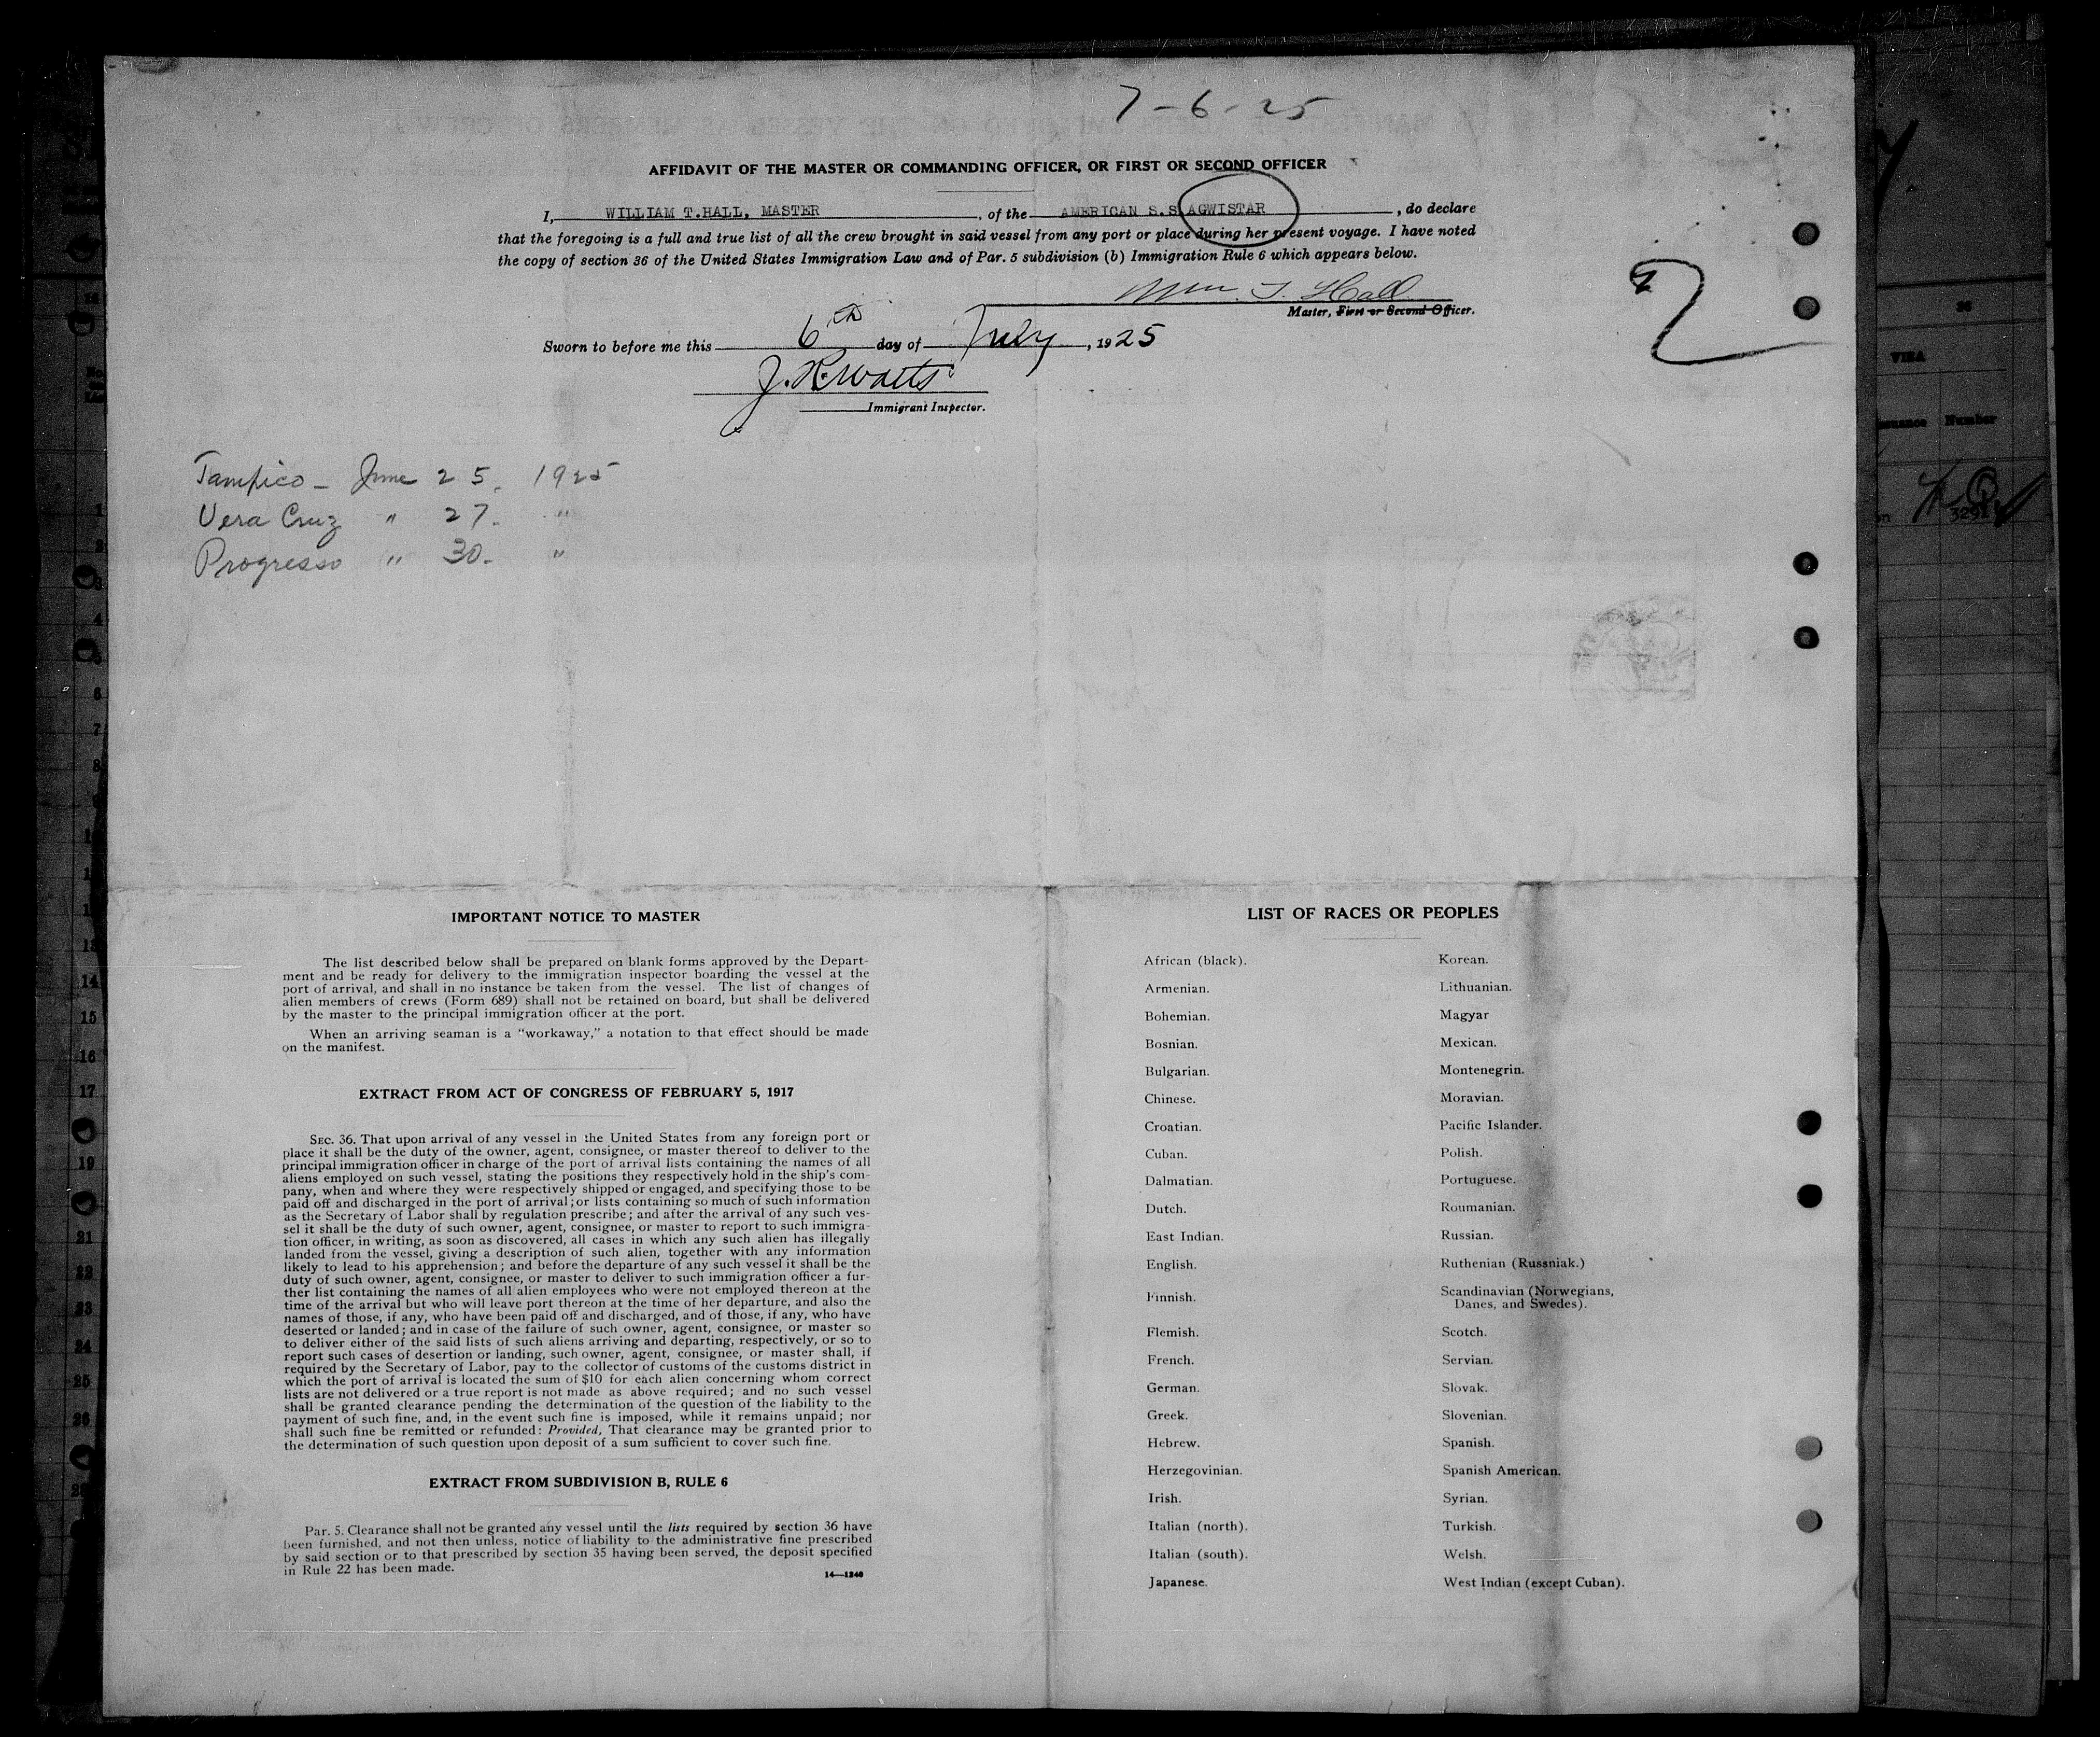 7-6-25
AFFIDAVIT OF THE MASTER OR COMMANDING OFFICER, OR FIRST OR SECOND OFFICER
I, WILLIAM T.HALL, MASTER, of the AMERICAN S.S AGWISTAR, do declare
that the foregoing is a full and true list of all the crew brought in said vessel from any port or place during her present voyage. I have noted
the copy of section 36 of the United States Immigration Law and of Par. 5 subdivision (b) Immigration Rule 6 which appears below.
Wm. T. Hall
Master, First or Second Officer.
2
Sworn to before me this 6th day of July, 1925
Immigrant Inspector.
Tampico - June 25, 1925
Vera Cruz " 27. "
Progresso " 30. "
IMPORTANT NOTICE TO MASTER
The list described below shall be prepared on blank forms approved by the Depart-
ment and be ready for delivery to the immigration inspector boarding the vessel at the
port of arrival, and shall in no instance be taken from the vessel. The list of changes of
alien members of crews (Form 689) shall not be retained on board, but shall be delivered
by the master to the principal immigration officer at the port.
When an arriving seaman is a "workaway," a notation to that effect should be made
on the manifest.
EXTRACT FROM ACT OF CONGRESS OF FEBRUARY 5, 1917
SEC. 36. That upon arrival of any vessel in the United States from any foreign port or
place it shall be the duty of the owner, agent, consignee, or master thereof to deliver to the
principal immigration officer in charge of the port of arrival lists containing the names of all
aliens employed on such vessel, stating the positions they respectively hold in the ship's com-
pany, when and where they were respectively shipped or engaged, and specifying those to be
paid off and discharged in the port of arrival; or lists containing so much of such information
as the Secretary of Labor shall by regulation prescribe; and after the arrival of any such ves-
sel it shall be the duty of such owner, agent, consignee, or master to report to such immigra-
tion officer, in writing, as soon as discovered, all cases in which any such alien has illegally
landed from the vessel, giving a description of such alien, together with any information
likely to lead to his apprehension; and before the departure of any such vessel it shall be the
duty of such owner, agent, consignee, or master to deliver to such immigration officer a fur-
ther list containing the names of all alien employees who were not employed thereon at the
time of the arrival but who will leave port thereon at the time of her departure, and also the
names of those, if any, who have been paid off and discharged, and of those, if any, who have
deserted or landed; and in case of the failure of such owner, agent, consignee, or master so
to deliver either of the said lists of such aliens arriving and departing, respectively, or so to
report such cases of desertion or landing, such owner, agent, consignee, or master shall, if
required by the Secretary of Labor, pay to the collector of customs of the customs district in
which the port of arrival is located the sum of $10 for each alien concerning whom correct
lists are not delivered or a true report is not made as above required; and no such vessel
shall be granted clearance pending the determination of the question of the liability to the
payment of such fine, and, in the event such fine is imposed, while it remains unpaid; nor
shall such fine be remitted or refunded: Provided, That clearance may be granted prior to
the determination of such question upon deposit of a sum sufficient to cover such fine.
EXTRACT FROM SUBDIVISION B, RULE 6
Par. 5. Clearance shall not be granted any vessel until the lists required by section 36 have
been furnished, and not then unless, notice of liability to the administrative fine prescribed
by said section or to that prescribed by section 35 having been served, the deposit specified
in Rule 22 has been made.
14—1240
LIST OF RACES OR PEOPLES
African (black).
Armenian.
Bohemian.
Bosnian.
Bulgarian.
Chinese.
Croatian.
Cuban.
Dalmatian.
Dutch.
East Indian.
English.
Finnish.
Flemish.
French.
German.
Greek.
Hebrew.
Herzegovinian.
Irish.
Italian (north).
Italian (south).
Japanese.
Korean.
Lithuanian.
Magyar
Mexican.
Montenegrin.
Moravian.
Pacific Islander.
Polish.
Portuguese.
Roumanian.
Russian.
Ruthenian (Russniak.)
Scandinavian (Norwegians,
Danes, and Swedes).
Scotch.
Servian.
Slovak.
Slovenian.
Spanish.
Spanish American.
Syrian.
Turkish.
Welsh.
West Indian (except Cuban).
36
VISA
Number